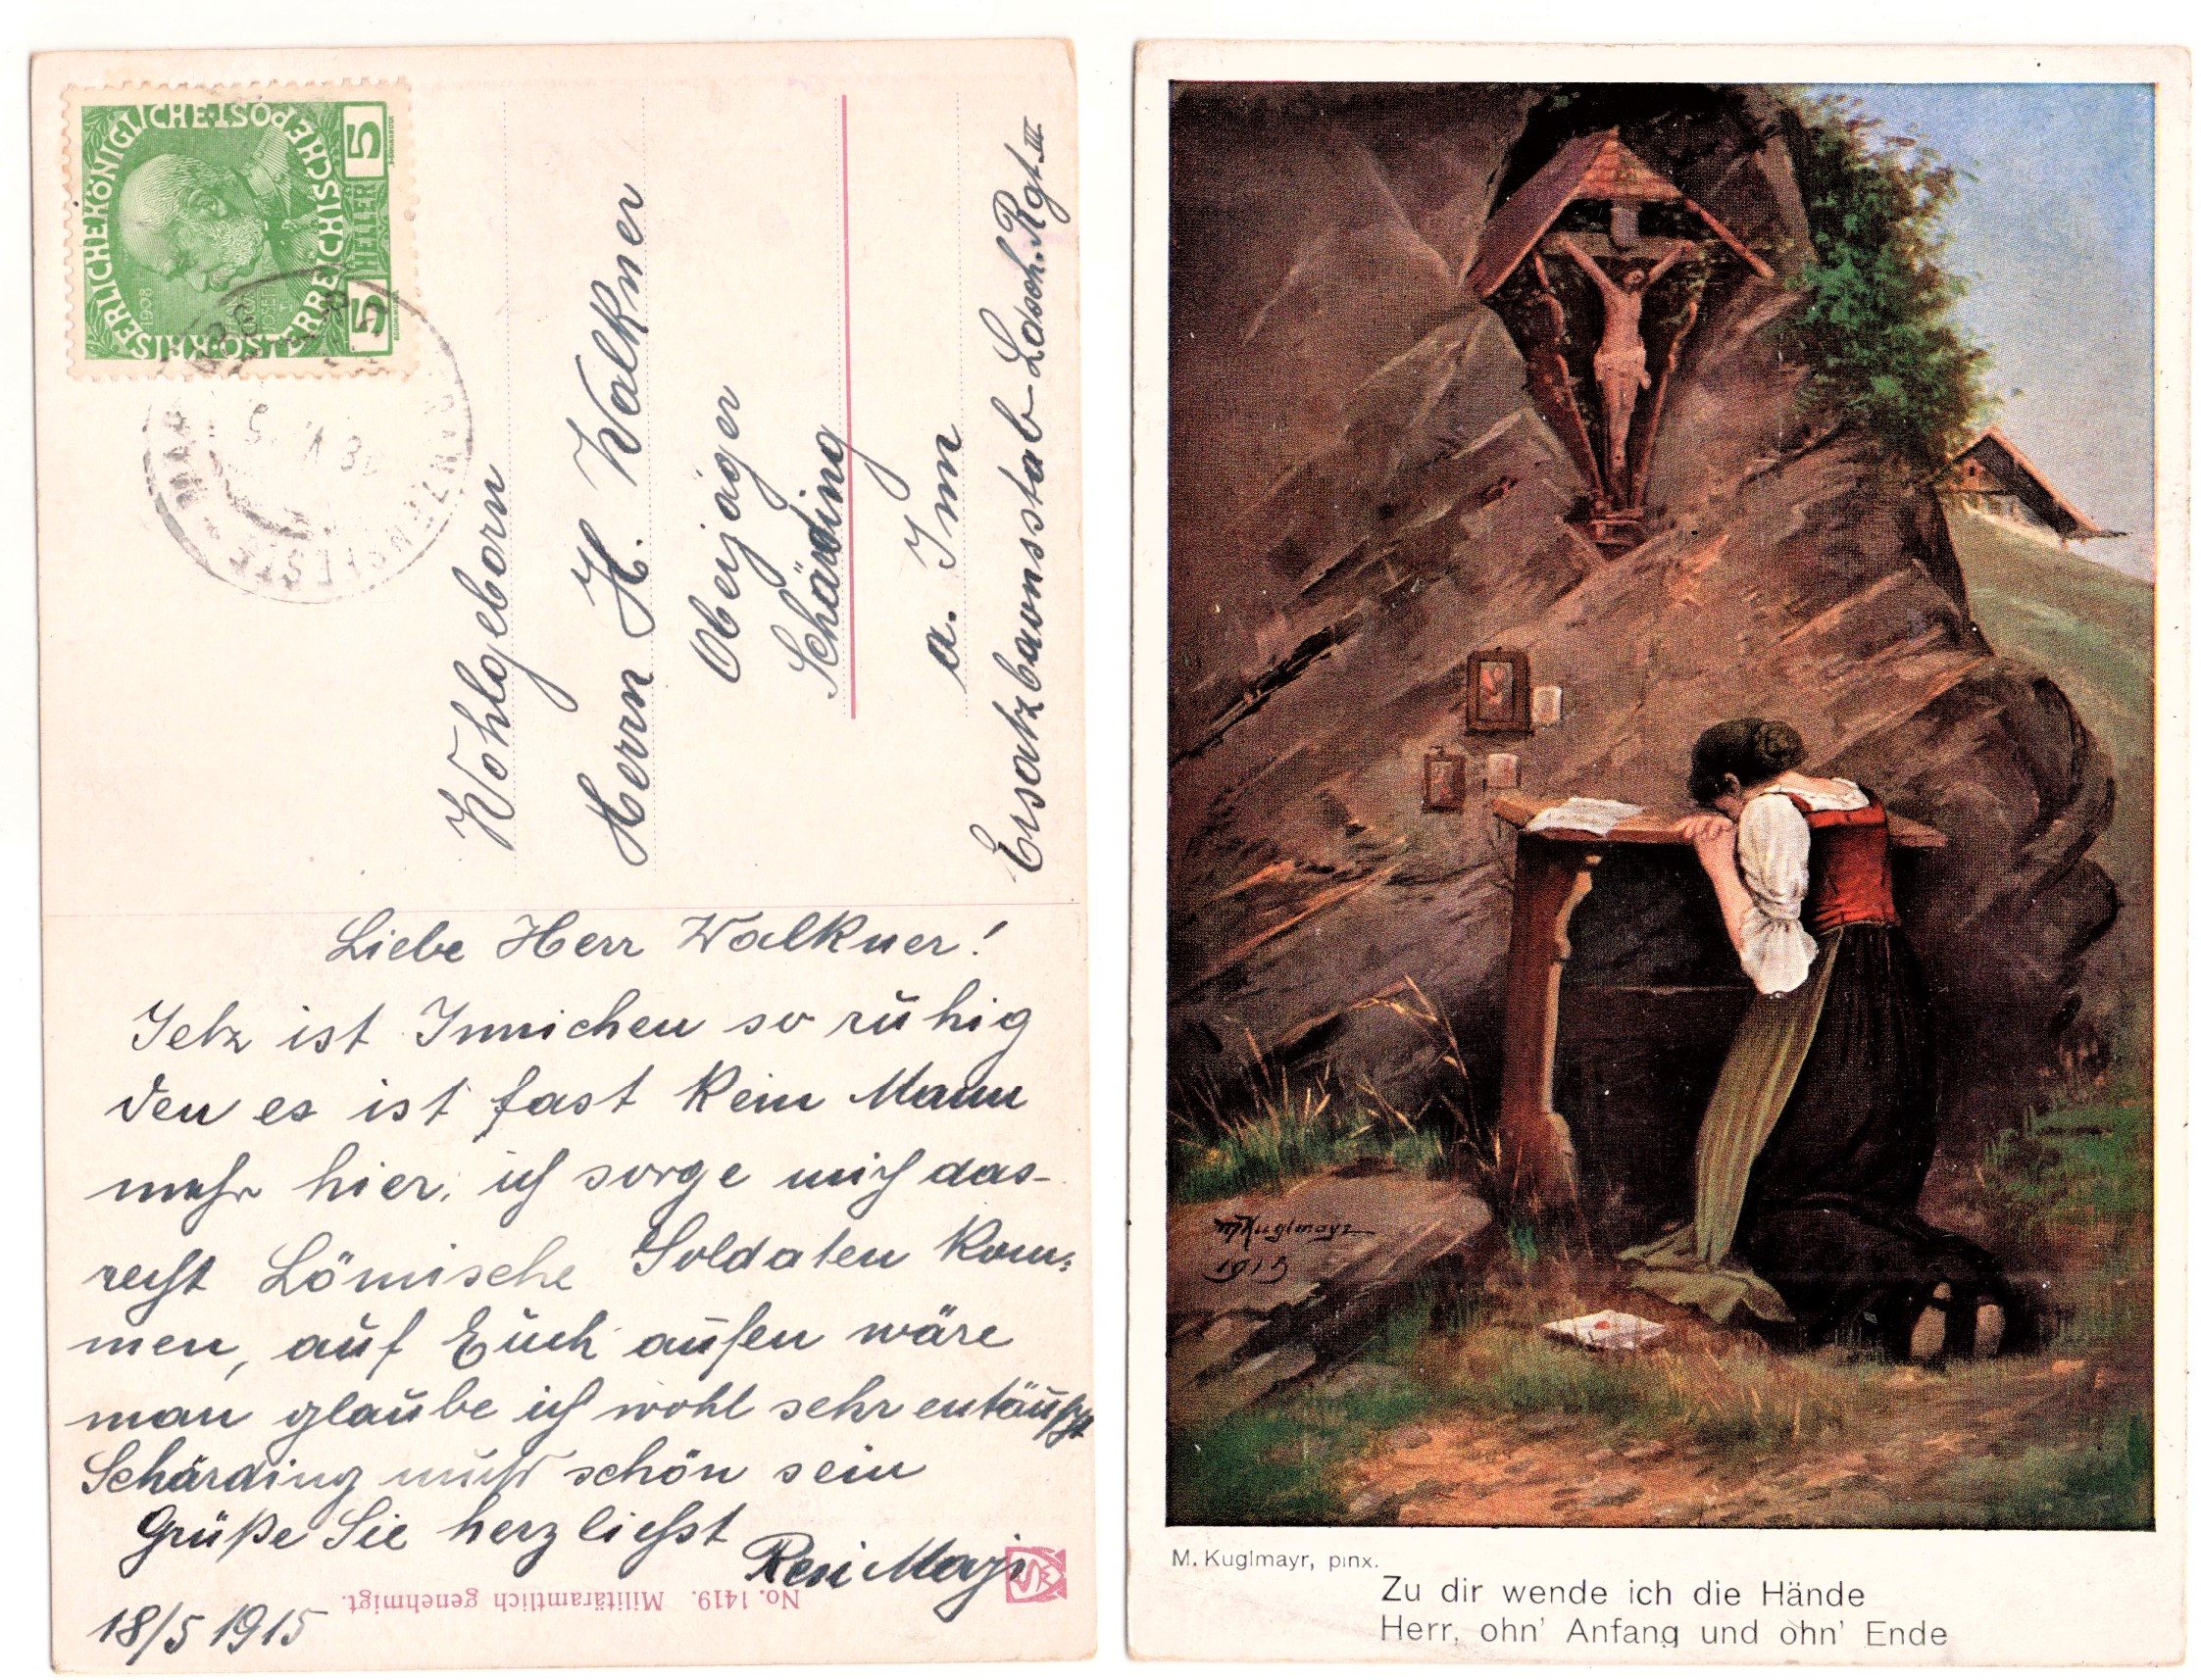 KAISERLICHE KÖNIGLICHE ÖSTERREICHISCHE POST
5 HELLER 5
1908
Wohlgeborn
Herrn H. Walkner
Oberjäger
Schärding
a. Inn
Ersatzbaonsstab-Ldsch.Rgt.III
Liebe Herr Walkner!
Jetz ist Innichen so ruhig
den es ist fast kein Mann
mehr hier, ich sorge mich das-
recht Lömische Soldaten kom:
men, auf Euch außen wäre
man glaube ich wohl sehr entäuscht
Schärding muß schön sein
Grüße Sie herzlichst
Resi Mayr
18/5 1915
No. 1419. Militäramtlich genehmigt.
M Kuglmayr
1915
M. Kuglmayr, pinx.
Zu dir wende ich die Hände
Herr, ohn' Anfang und ohn' Ende